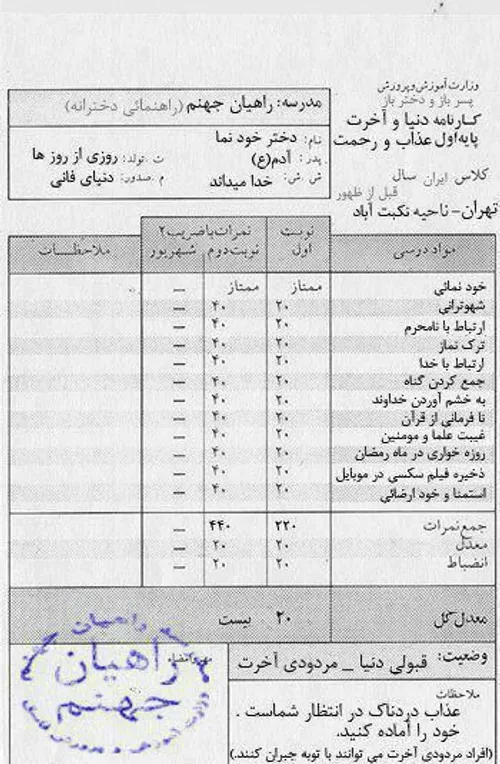 وزارت آموزش و پرورش
پسر باز و دختر باز
کارنامه دنیا و آخرت
پایه اول عذاب و رحمت
کلاس ایران سال
قبل از ظهور
تهران - ناحیه نکبت آباد
مدرسه: راهیان جهنم (راهنمائی دخترانه)
نام: دختر خود نما
پدر: آدم(ع) ت. تولد: روزی از روز ها
ش. ش: خدا میداند م. صدور: دنیای فانی
مواد درسی نوبت اول نمرات با ضریب ۲ نوبت دوم شهریور ملاحظات
خود نمائی ممتاز ممتاز —
شهوترانی ۲۰ ۴۰ —
ارتباط با نامحرم ۲۰ ۴۰ —
ترک نماز ۲۰ ۴۰ —
ارتباط با خدا ۲۰ ۴۰ —
جمع کردن گناه ۲۰ ۴۰ —
به خشم آوردن خداوند ۲۰ ۴۰ —
نا فرمانی از قرآن ۲۰ ۴۰ —
غیبت علما و مومنین ۲۰ ۴۰ —
روزه خواری در ماه رمضان ۲۰ ۴۰ —
ذخیره فیلم سکسی در موبایل ۲۰ ۴۰ —
استمنا و خود ارضائی ۲۰ ۴۰ —
جمع نمرات ۲۲۰ ۴۴۰ —
معدل ۲۰ ۲۰ —
انضباط ۲۰ ۲۰ —
معدل کل ۲۰ بیست
وضعیت: قبولی دنیا _ مردودی آخرت
ملاحظات
عذاب دردناک در انتظار شماست .
خود را آماده کنید.
(افراد مردودی آخرت می توانند با توبه جبران کنند.)
مهر و امضاء
راهیان
جهنم